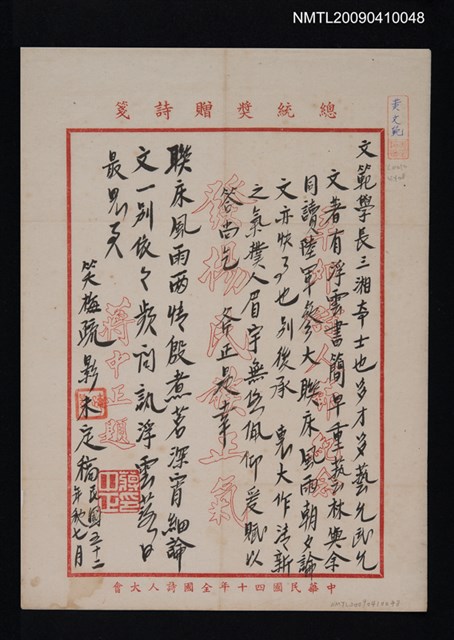 NMTL20090410048
總統獎贈詩箋
黃文範
文範學長三湘奇士也多才多藝允武允
文著有浮雲書簡早重藝林與余
同讀陸軍參大聯床風雨朝夕論
文亦快事也別後承 惠大作清新
之氣撲人眉宇無任佩仰爰賦以
答尚乞 斧正是幸
聯床風雨兩情殷煮茗深宵細論
文一別依依頻問訊浮雲落日
最思君
笑梅疏影未定稿民國五十二
年秋七月
發揚民族正氣
蔣中正題
中華民國四十年全國詩人大會
NMTL20090410048